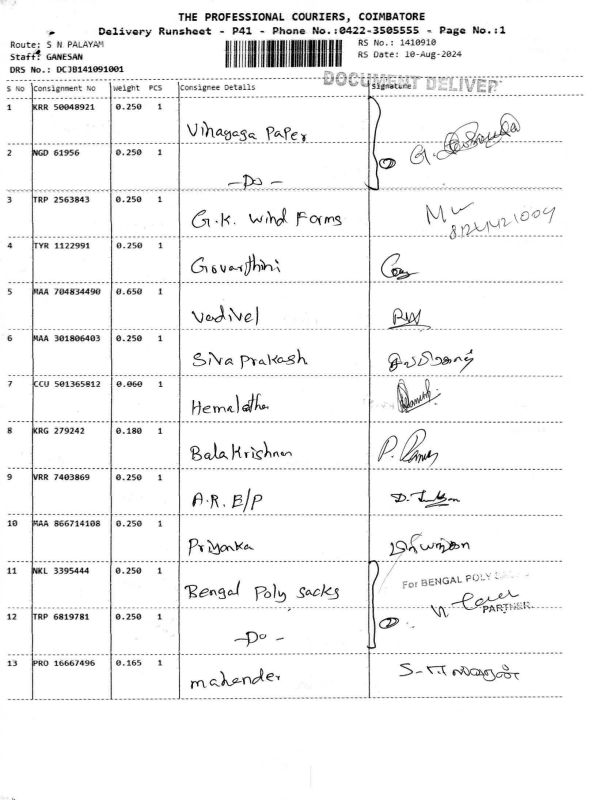 THE PROFESSIONAL COURIERS, COIMBATORE
Delivery Runsheet - P41 - Phone No.:0422-3505555 - Page No.:1
Route: S N PALAYAM RS No.: 1410910
Staff: GANESAN RS Date: 10-Aug-2024
DRS No.: DCJB141091001
DOCUMENT DELIVER
S No Consignment No Weight PCS Consignee Details Signature
1 KRR 50048921 0.250 1 Vinayaga Paper
2 NGD 61956 0.250 1 -Do- 2 G.
3 TRP 2563843 0.250 1 G.K. Wind Forms
4 TYR 1122991 0.250 1 Govarthini
5 MAA 704834490 0.650 1 Vadivel
6 MAA 301806403 0.250 1 Siva Prakash
7 CCU 501365812 0.060 1 Hemalatha
8 KRG 279242 0.180 1 Bala Krishnan P.
9 VRR 7403869 0.250 1 A.R. E/P D.
10 MAA 866714108 0.250 1 Priyanka
11 NKL 3395444 0.250 1 Bengal Poly Sacks For BENGAL POLY
12 TRP 6819781 0.250 1 -Do- 2 PARTNER.
13 PRO 16667496 0.165 1 mahender